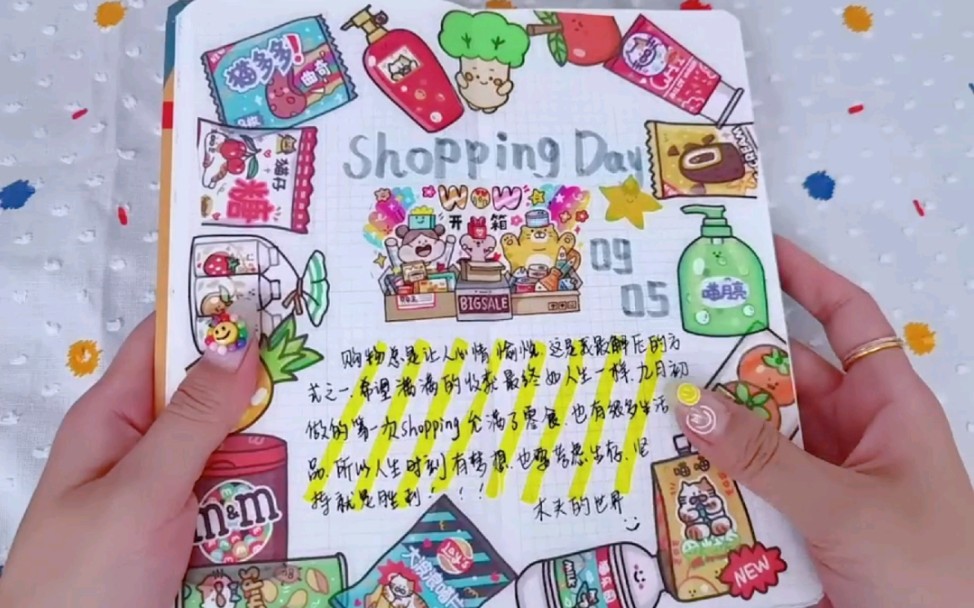 猫多多!
曲奇
Shopping Day
猫仔
糖
WOW
开箱
09
05
BIGSALE
喵月亮
购物总是让人心情愉悦.这是我最解压的方
式之一.希望满满的收获最终如人生一样.九月初
做的第一次shopping充满了零食.也有很多生活
品.所以人生时刻有梦想.也要考虑生存.坚
持就是胜利!!!
木夹的世界
m&m
NEW
MILK